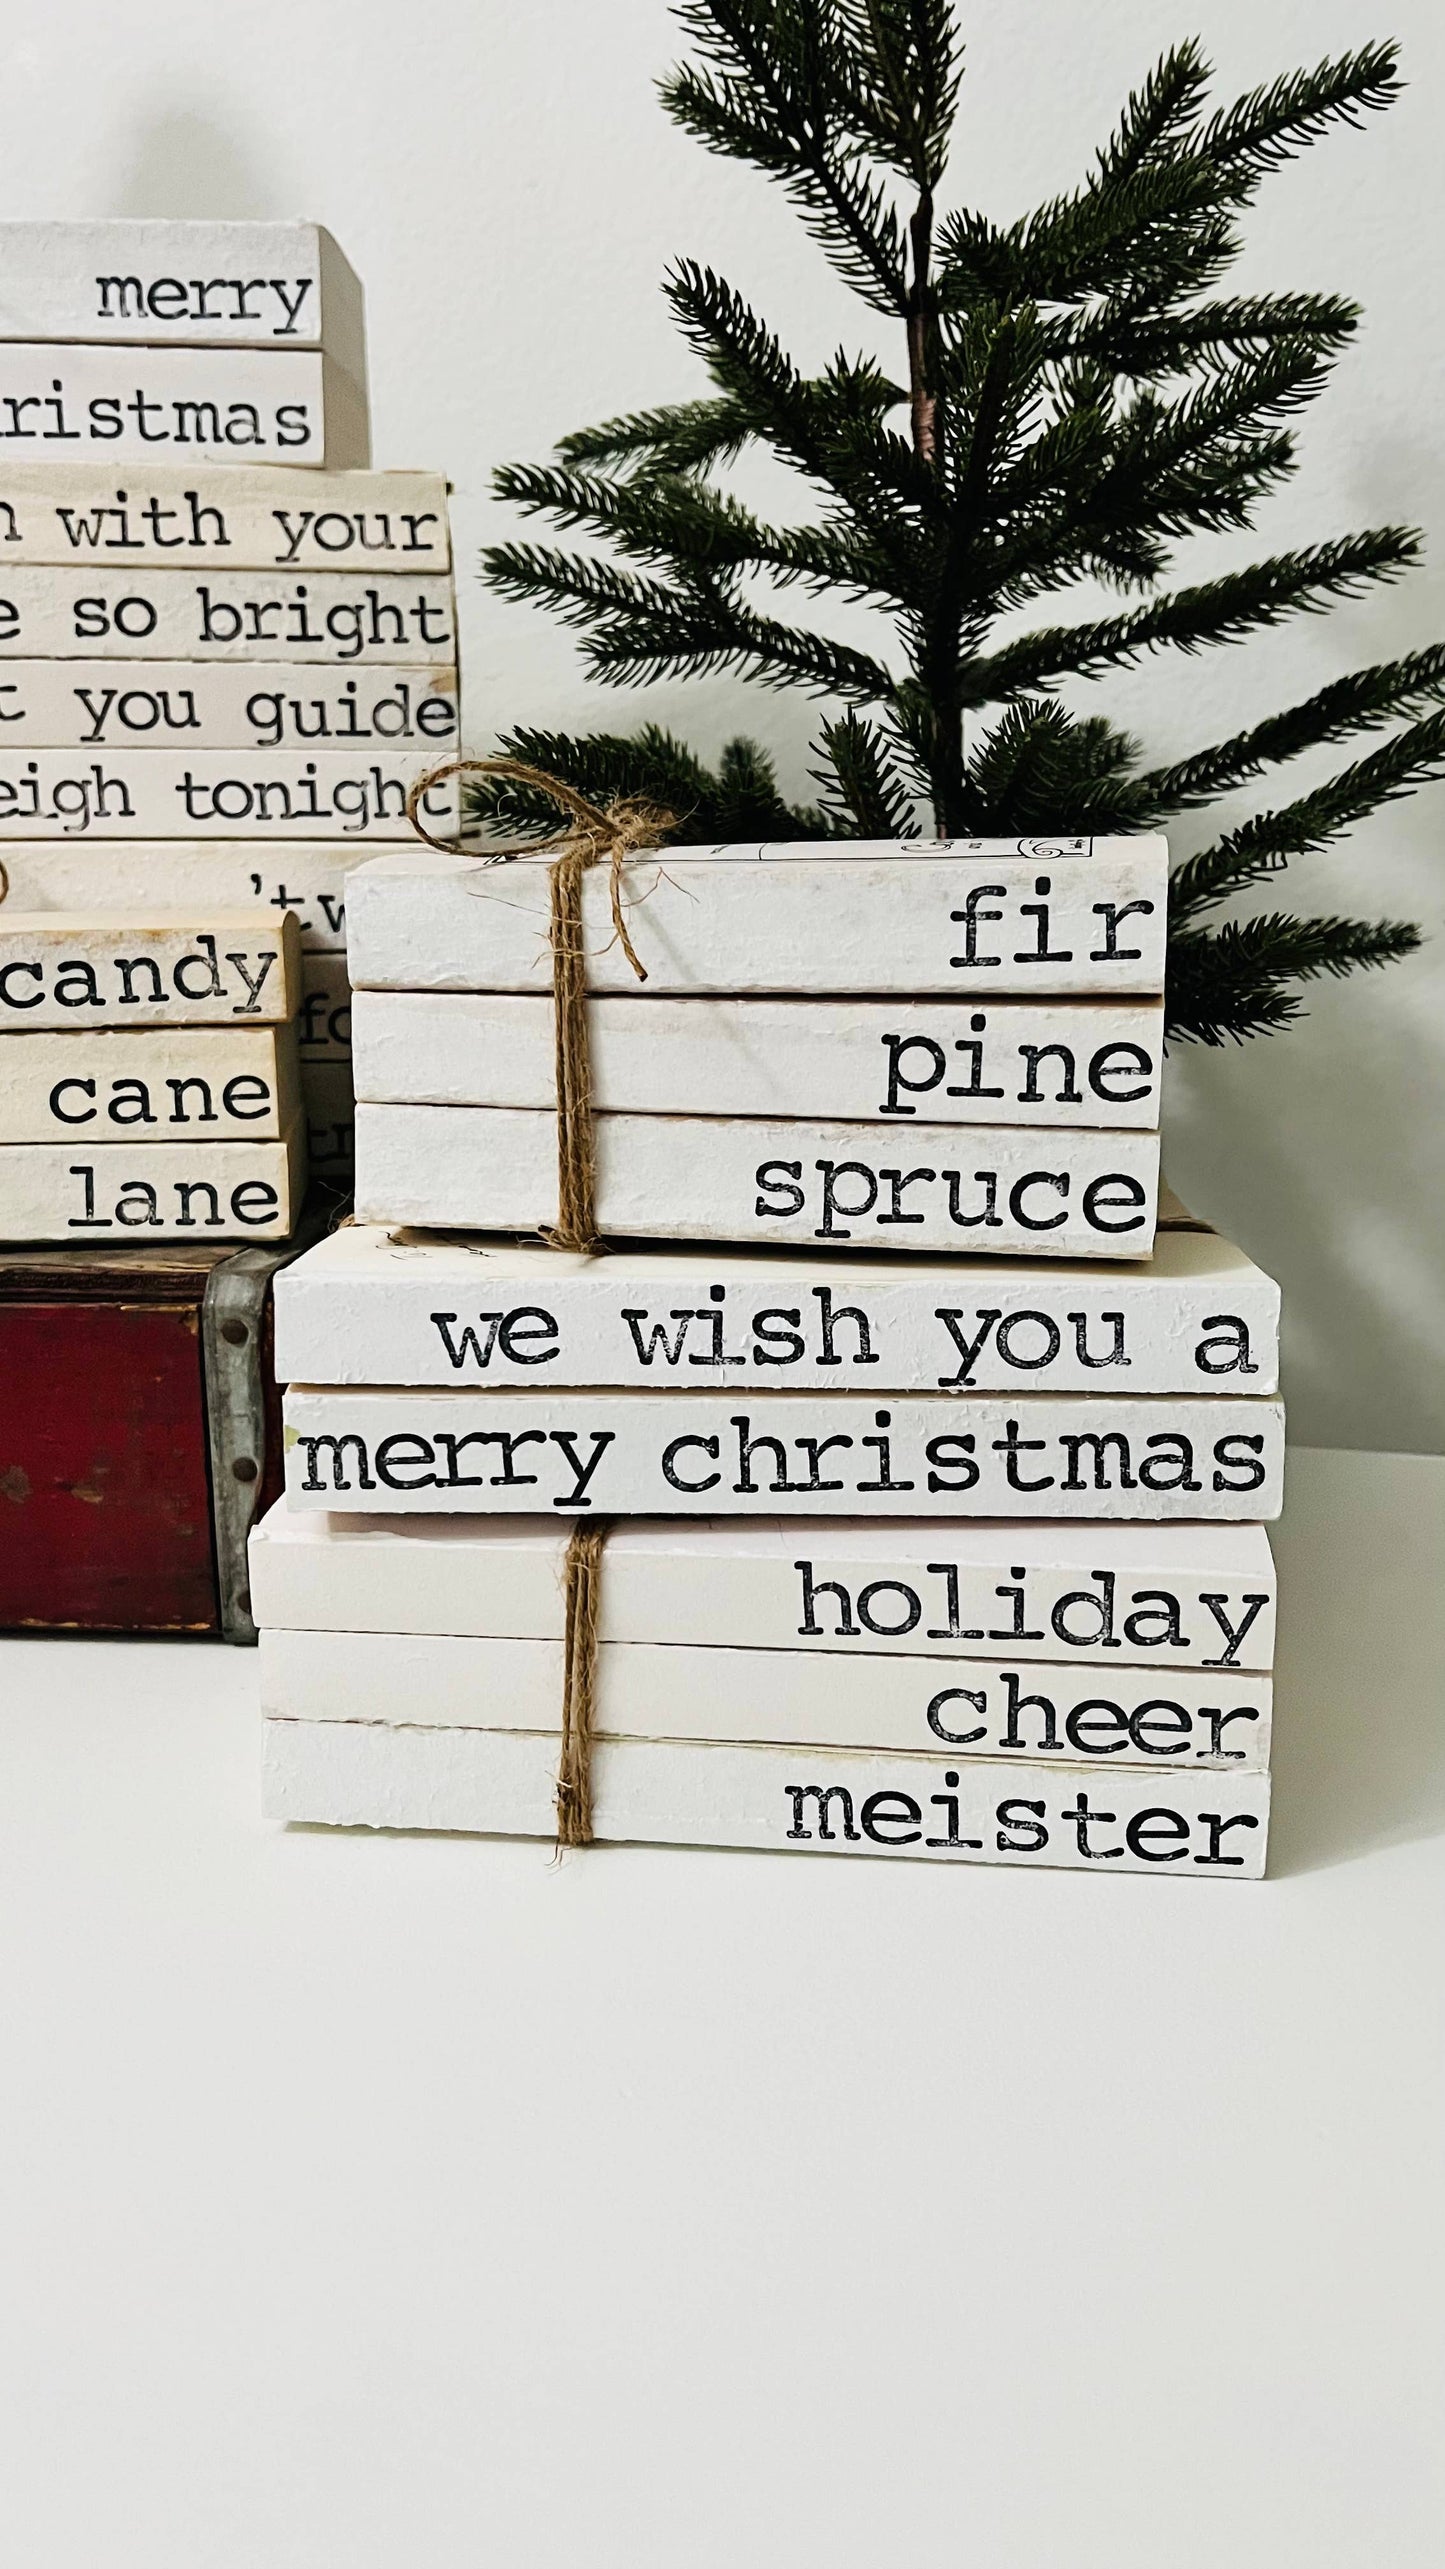 merry
ristmas
with your
so bright
you guide
eigh tonight
'tw
candy
cane
lane
fir
pine
spruce
we wish you a
merry christmas
holiday
cheer
meister